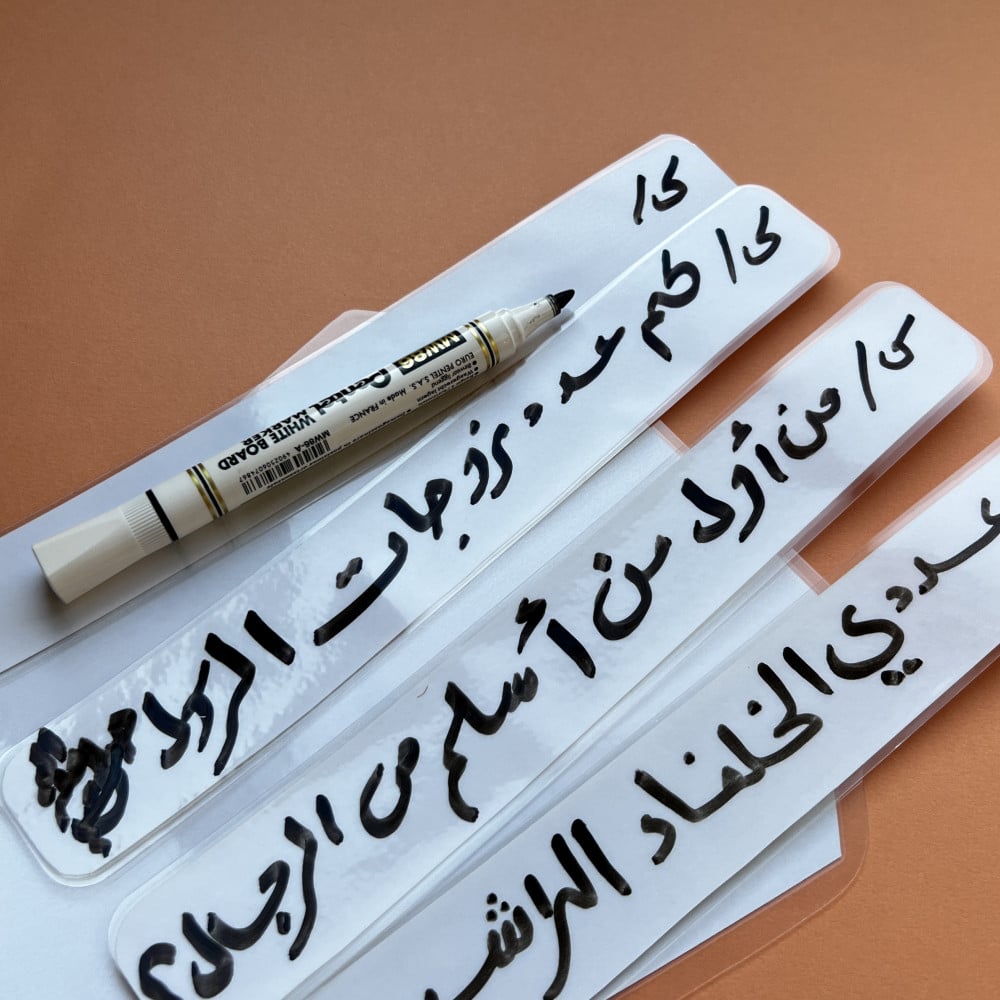 س/
س/ كم عدد زوجات الرسول
س/ من أول من أسلم من الرجال؟
عددي الخلفاء الراش
MW86 Pentel WHITE BOARD MARKER
EURO PENTEL S.A.S. Made in FRANCE
MW86-A
4902506074867